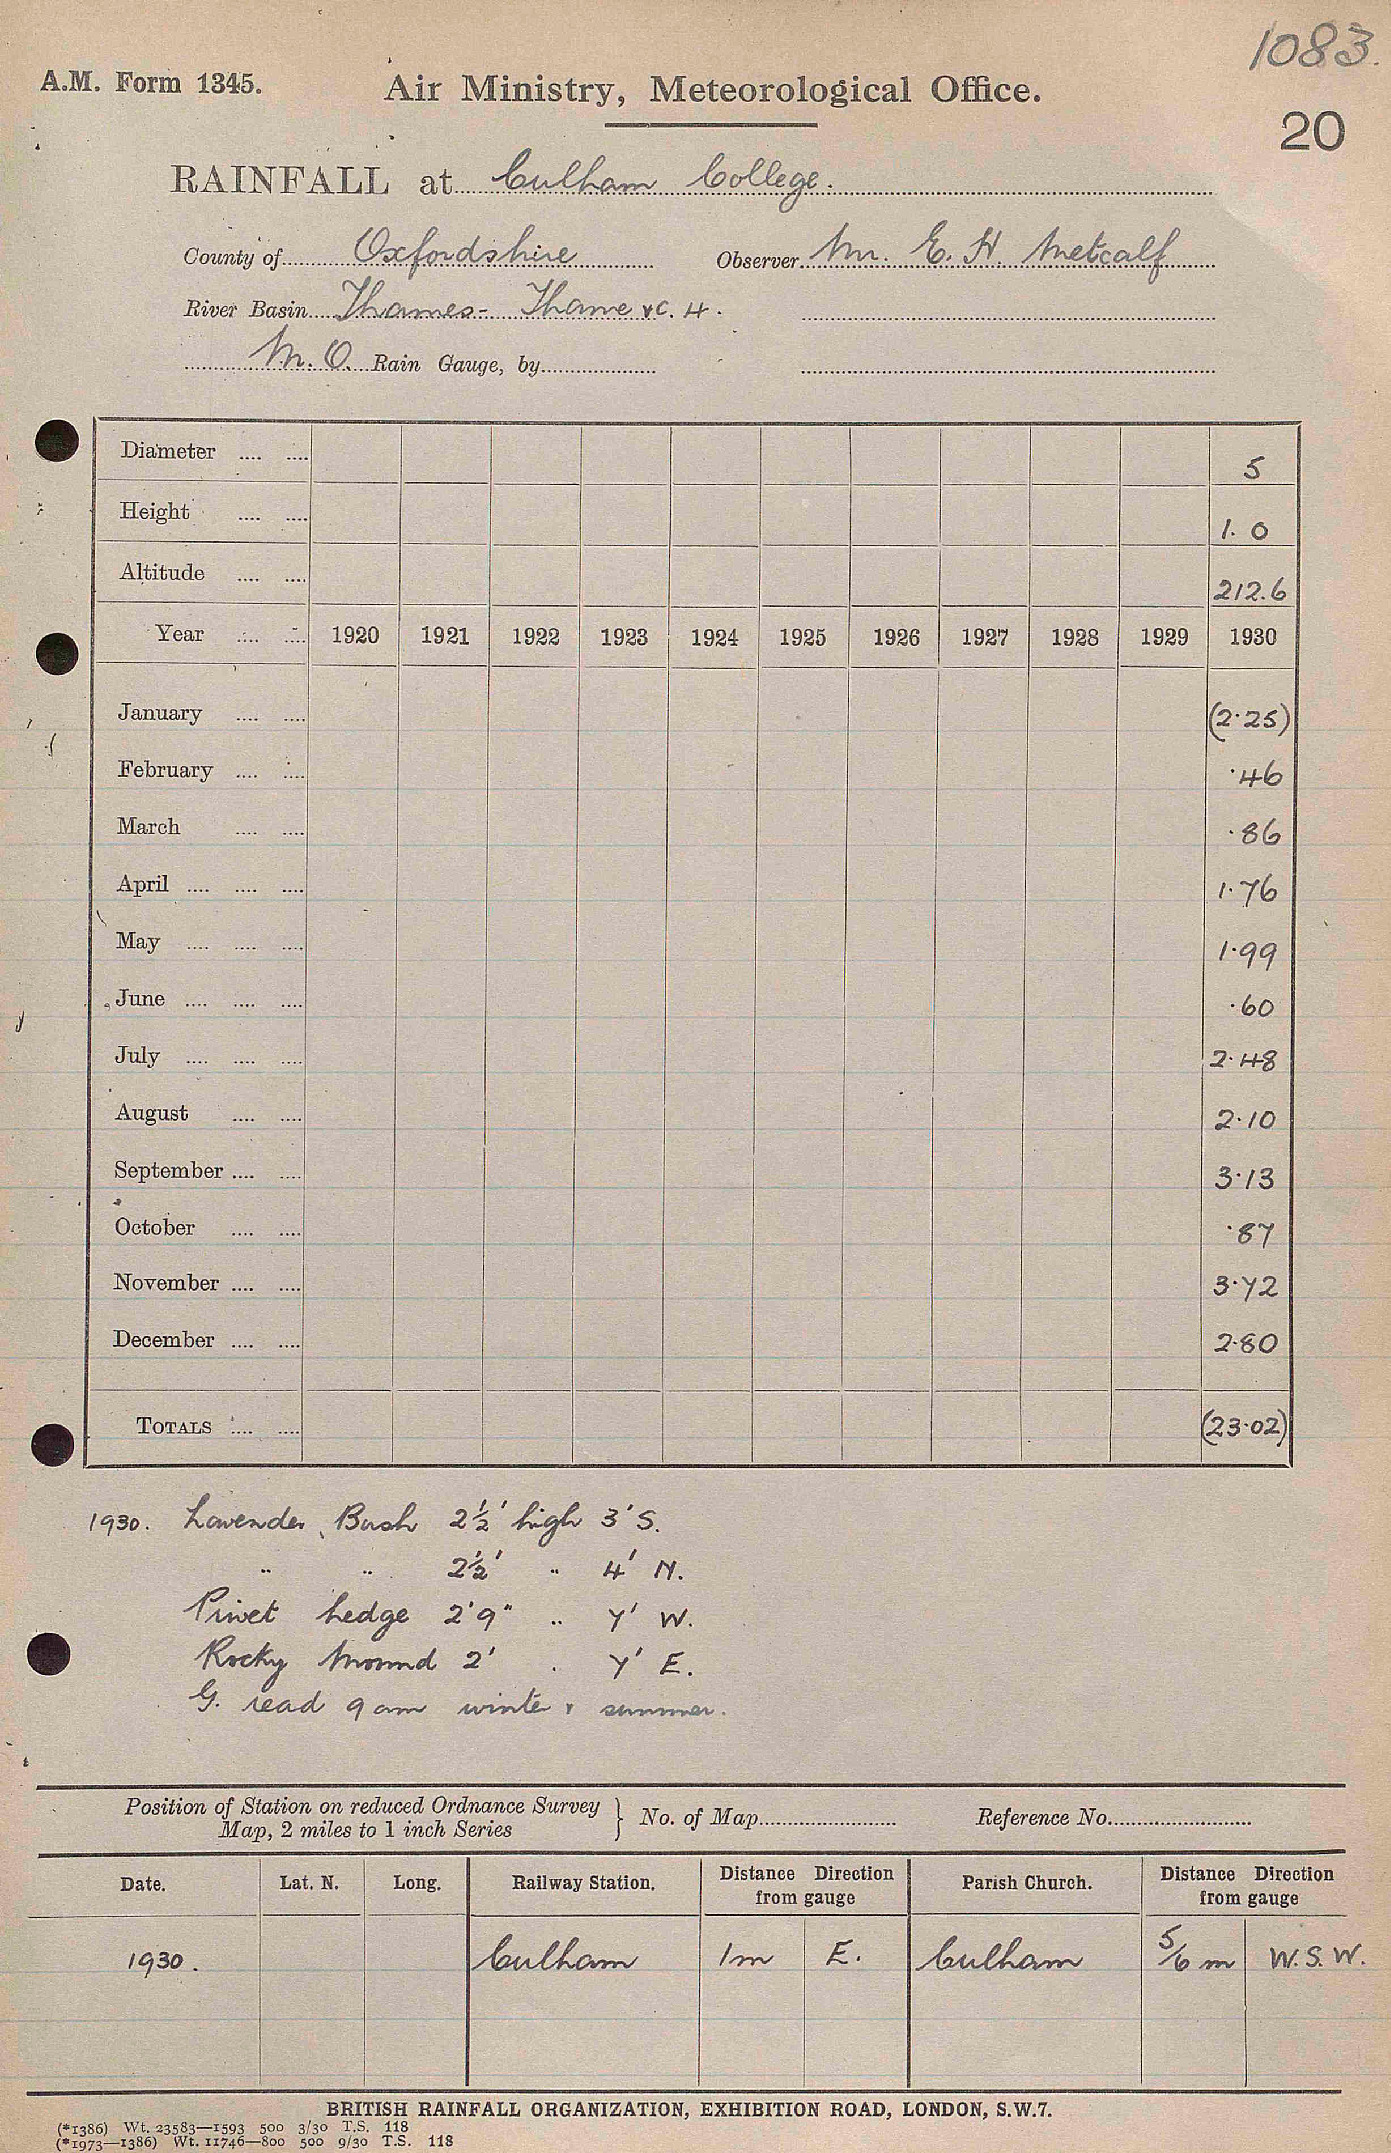 1083.
A.M. Form 1345. Air Ministry, Meteorological Office.
20
RAINFALL at Culham College.
County of Oxfordshire Observer Mr. E. H. Metcalf
River Basin Thames - Thame & C. 4.
M.O. Rain Gauge, by
Diameter .... .... 5
Height .... .... 1.0
Altitude .... .... 212.6
Year .... .... 1920 1921 1922 1923 1924 1925 1926 1927 1928 1929 1930
January .... .... (2.25)
February .... .... .46
March .... .... .86
April .... .... .... 1.76
May .... .... .... 1.99
June .... .... .... .60
July .... .... .... 2.48
August .... .... 2.10
September .... .... 3.13
October .... .... .87
November .... .... 3.72
December .... .... 2.80
TOTALS .... .... (23.02)
1930. Lavender Bush 2½' high 3' S.
" " 2½' " 4' N.
Privet hedge 2'9" " 7' W.
Rocky Mound 2' " 7' E.
G. read 9 am winter & summer.
Position of Station on reduced Ordnance Survey Map, 2 miles to 1 inch Series } No. of Map Reference No.
Date. Lat. N. Long. Railway Station. Distance Direction from gauge Parish Church. Distance Direction from gauge
1930. Culham 1m E. Culham 5/6 m W.S.W.
BRITISH RAINFALL ORGANIZATION, EXHIBITION ROAD, LONDON, S.W.7.
(*1386) Wt. 23583—1593 500 3/30 T.S. 118
(*1973—1386) Wt. 11746—800 500 9/30 T.S. 118